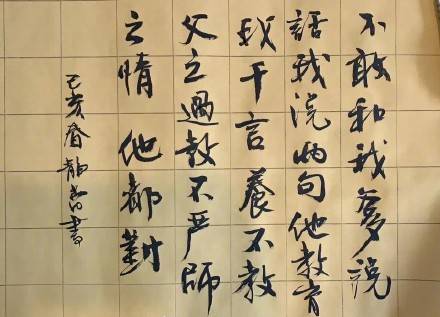 不敢和我多说
話我说两句他教育
我千言養不教
父之過教不严師
之惰他都對
己亥春静书